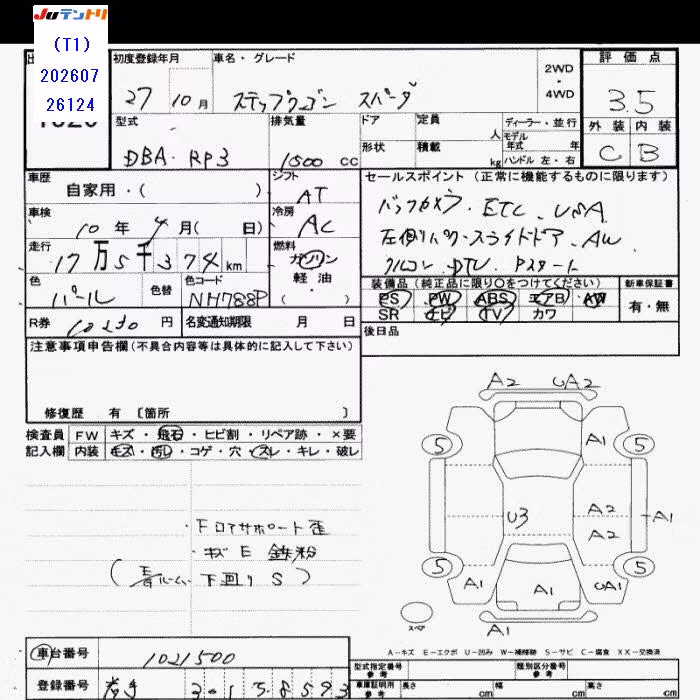 JUテントリ
(T1)
202607
26124
初度登録年月
27 10月
車名・グレード
ステップワゴン スパーダ
2WD
・
4WD
評価点
3.5
外装 内装
C B
型式
DBA・RP3
排気量
1500 cc
ドア
形状
定員
人
積載
kg
ディーラー・並行
モデル年式 年
ハンドル 左・右
車歴
自家用・( )
シフト
AT
車検
10年 4月( 日)
冷房
AC
走行
17万5千374km
燃料
ガソリン
軽油
・
( )
色
パール
色替
色コード
NH788P
R券
10230円
名変通知期限 月 日
セールスポイント(正常に機能するものに限ります)
バックカメラ・ETC・USA
左側リパワースライドドア・AW
クルコン DTV Pスタート
装備品(純正品に限り○をつけてください)
PS PW ABS エアB AW
SR ナビ TV カワ
新車保証書
有・無
後日品
注意事項申告欄(不具合内容等は具体的に記入して下さい)
修復歴 有 [箇所 ]
検査員記入欄
FW キズ・飛石・ヒビ割・リペア跡・×要
内装 キズ・汚レ・コゲ・穴・スレ・キレ・破レ
・Fロアサポート歪
・キズE 鉄粉
下回りS)
A2 UA2
5 A1 5
U3 A2 A1
A2
5 5
A1 A1 UA1
A1
スペア
A-キズ E-エクボ U-凹み W-補修跡 S-サビ C-腐食 XX-交換済
車台番号
1021500
登録番号
型式指定番号
参考
類別区分番号
参考
車庫証明用
参考
長さ cm 幅 cm 高さ cm